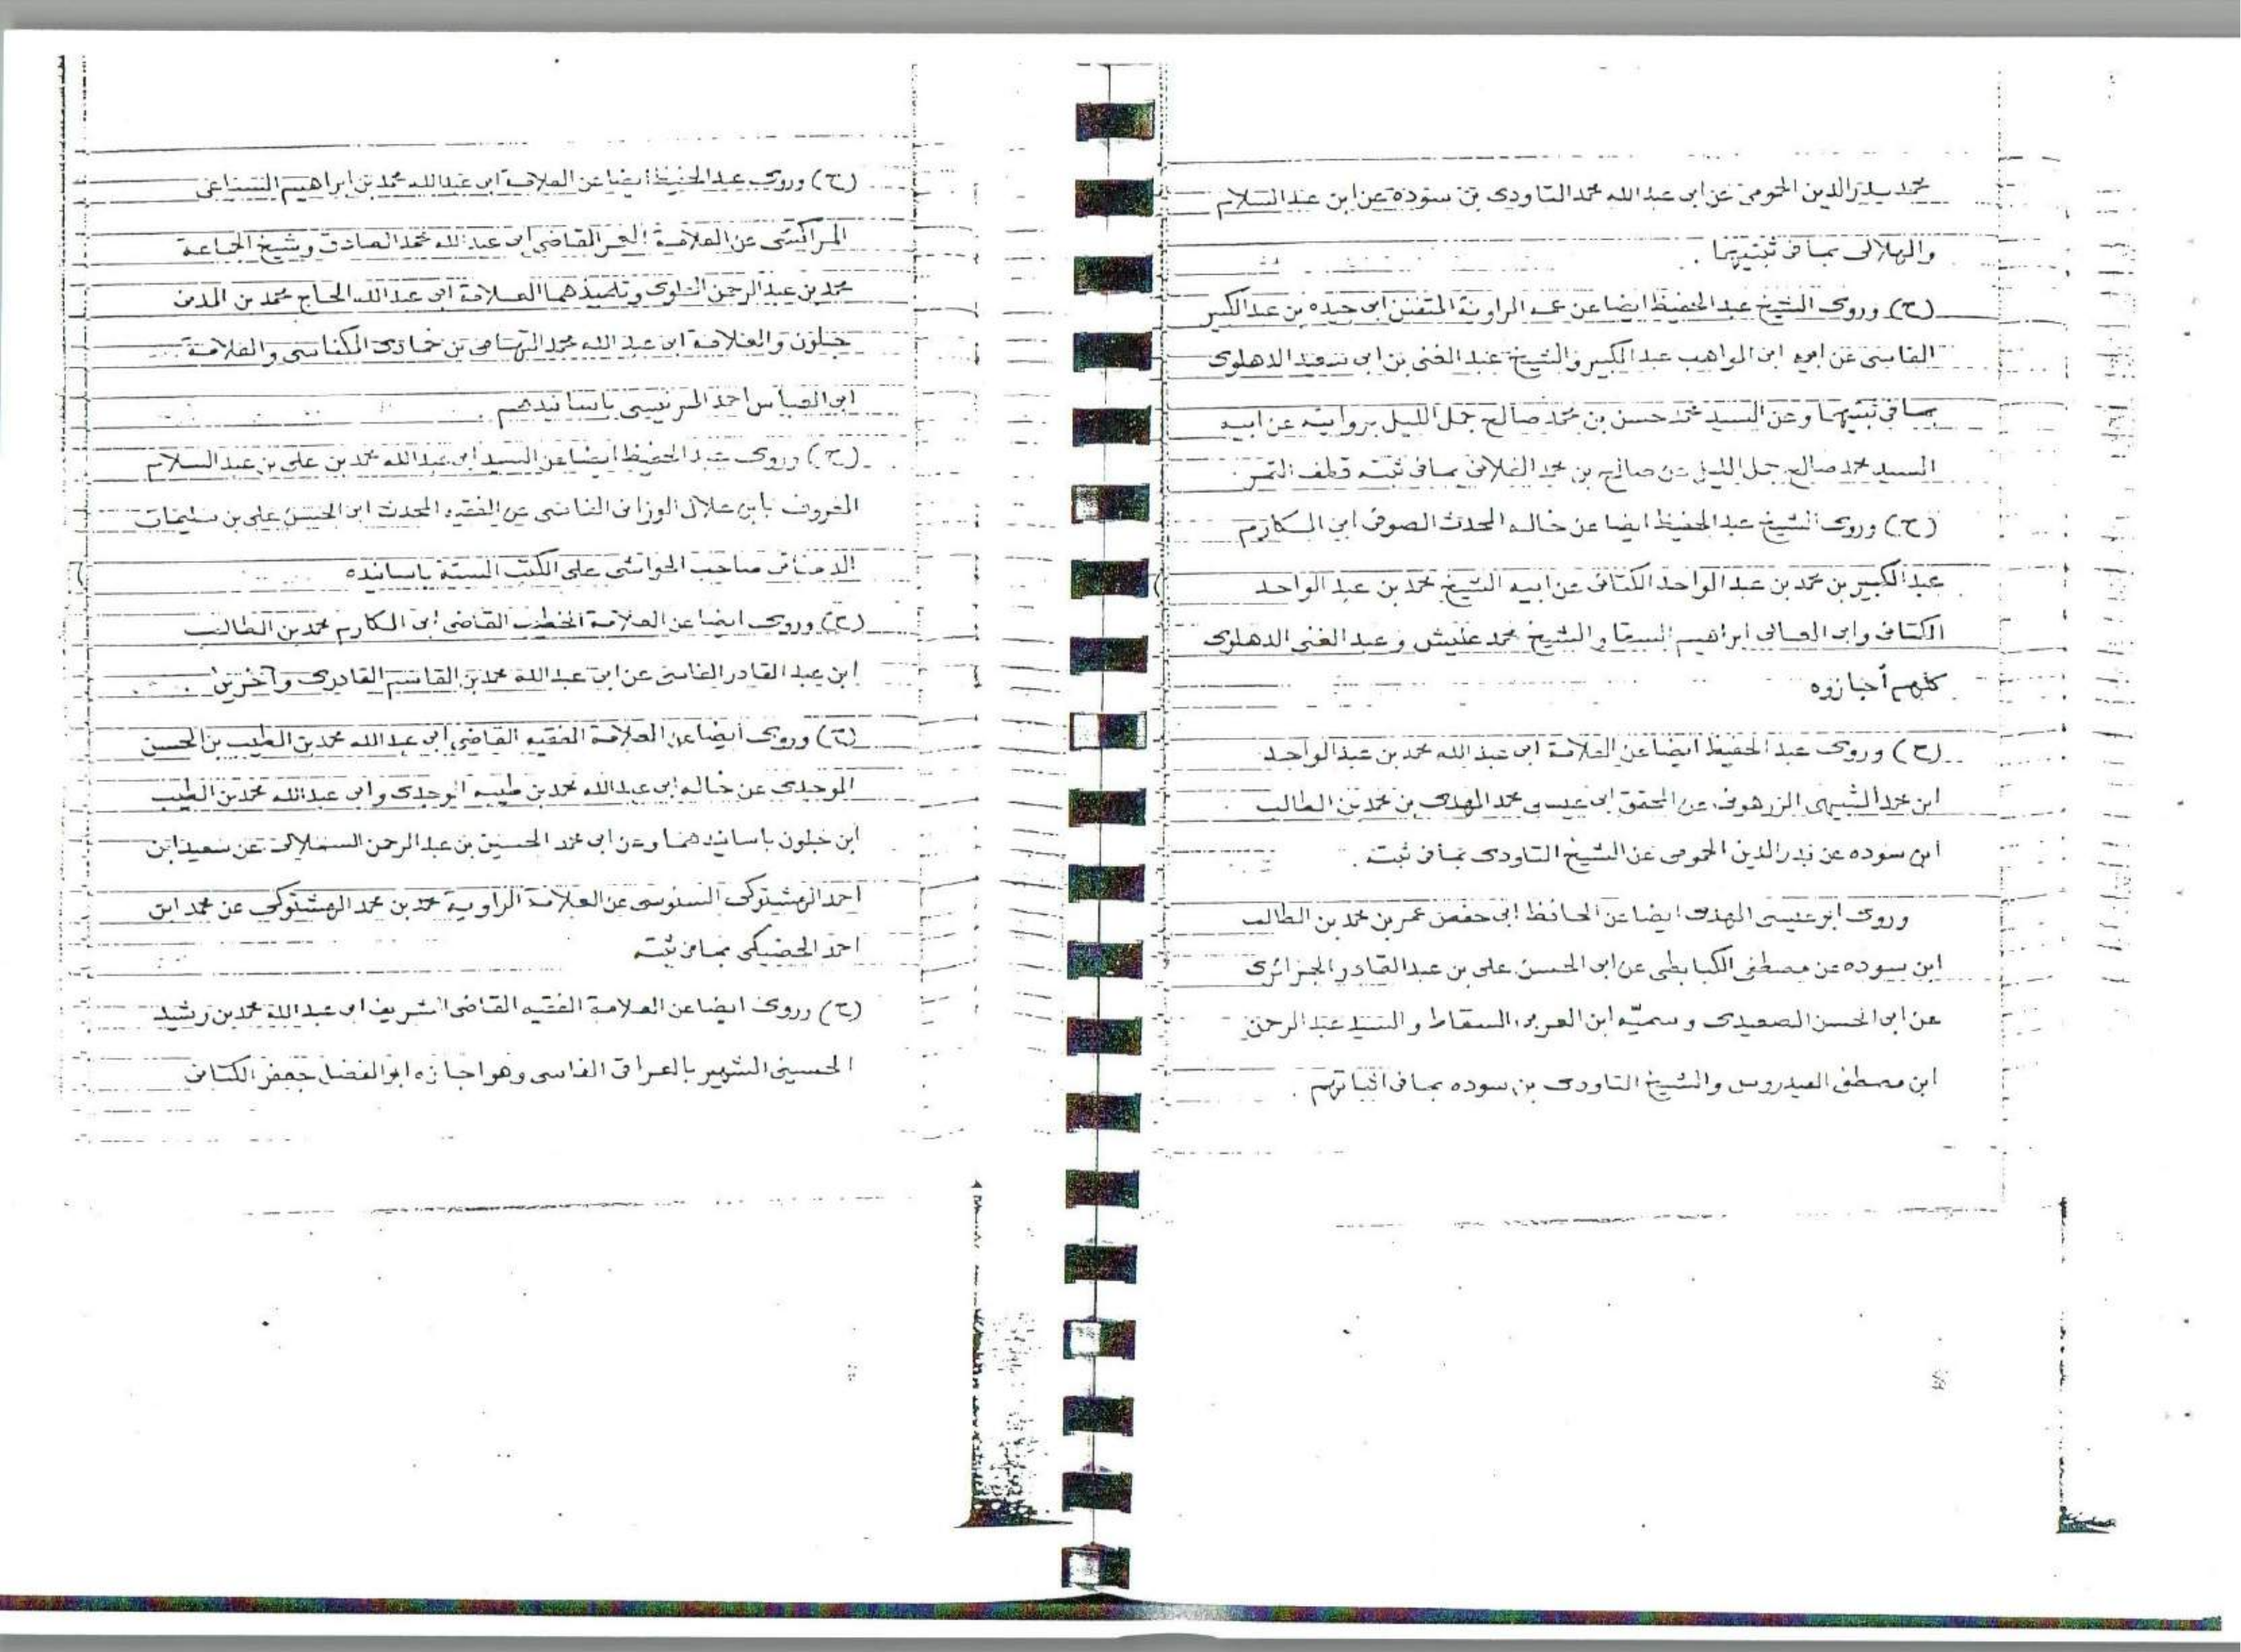 محمد بدر الدين الحمومى عن ابى عبد الله محمد التاودى بن سوده عن ابن عبد السلام
والهلالى بما فى ثبتيهما .
(ح) وروى الشيخ عبد الحفيظ ايضا عن عمه الراوية المتفنن ابى جيده بن عبد الكبير
الفاسى عن ابيه ابى المواهب عبد الكبير والشيخ عبد الغنى بن ابى سعيد الدهلوى
بما فى ثبتيهما وعن السيد محمد حسن بن محمد صالح جمل الليل بروايته عن ابيه
السيد محمد صالح جمل الليل عن صالح بن محمد الفلانى بما فى ثبته قطف الثمر
(ح) وروى الشيخ عبد الحفيظ ايضا عن خاله المحدث الصوفى ابى المكارم
عبد الكبير بن محمد بن عبد الواحد الكتانى عن ابيه الشيخ محمد بن عبد الواحد
الكتانى وابى المعالى ابراهيم السقا والشيخ محمد عليش وعبد الغنى الدهلوى
كلهم أجازوه
(ح) وروى عبد الحفيظ ايضا عن العلامة ابى عبد الله محمد بن عبد الواحد
ابن محمد الشبيهى الزرهونى عن المحقق ابى عيسى محمد المهدى بن محمد بن الطالب
ابن سوده عن بدر الدين الحمومى عن الشيخ التاودى بما فى ثبته .
وروى ابو عيسى المهدى ايضا عن الحافظ ابى حفص عمر بن محمد بن الطالب
ابن سوده عن مصطفى الكبابطى عن ابى الحسن على بن عبد القادر الجزائرى
عن ابى الحسن الصعيدى وسميّه ابن العربى السقاط والسيد عبد الرحمن
ابن مصطفى العيدروس والشيخ التاودى بن سوده بما فى اثباتهم .
(ح) وروى عبد الحفيظ ايضا عن العلامة ابى عبد الله محمد بن ابراهيم السباعى
المراكشى عن العلامة القاضى ابى عبد الله محمد الصادق وشيخ الجماعة
محمد بن عبد الرحمن العلوى وتلميذهما العلامة ابى عبد الله الحاج محمد بن المدنى
جلون والعلامة ابى عبد الله محمد التهامى بن حمادى المكناسى والعلامة
ابى العباس احمد المرنيسى باسانيدهم .
(ح) وروى عبد الحفيظ ايضا عن السيد ابى عبد الله محمد بن على بن عبد السلام
المعروف بابن علال الوزانى الفاسى عن الفقيه المحدث ابى الحسن على بن سليمان
الدمناتى صاحب الحواشى على الكتب الستة باسانده
(ح) وروى ايضا عن العلامة الخطيب القاضى ابى المكارم محمد بن الطالب
ابن عبد القادر الفاسى عن ابى عبد الله محمد بن القاسم القادرى وآخرين .
(ح) وروى ايضا عن العلامة الفقيه القاضى ابى عبد الله محمد بن الطيب بن الحسن
الوجدى عن خاله ابى عبد الله محمد بن طيبه الوجدى وابى عبد الله محمد بن الطيب
ابن جلون باسانيدهما وعن ابى محمد الحسين بن عبد الرحمن السملالى عن سعيد ابن
احمد الهشتوكى السنوسى عن العلامة الراوية محمد بن محمد الهشتوكى عن محمد ابن
احمد الحضيكى بما فى ثبته
(ح) وروى ايضا عن العلامة الفقيه القاضى الشريف ابى عبد الله محمد بن رشيد
الحسينى الشهير بالعراقى الفاسى وهو اجازه ابو الفضل جعفر الكتانى